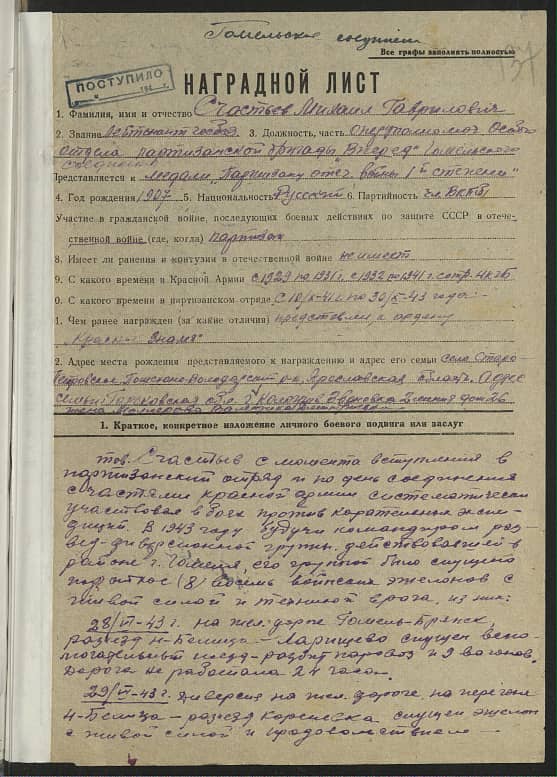 Гомельское соединен.
Все графы заполнять полностью
137
ПОСТУПИЛО
НАГРАДНОЙ ЛИСТ
1. Фамилия, имя и отчество Счастьев Михаил Гаврилович
2. Звание Лейтенант госбез. 3. Должность, часть Оперуполномоч. Особого
отдела партизанской бригады "Вперед" Гомельского
соединения
Представляется к медали "Партизану отеч. войны I й степени"
4. Год рождения 1907 5. Национальность Русский 6. Партийность чл. ВКП/б/
Участие в гражданской войне, последующих боевых действиях по защите СССР в отече-
ственной войне (где, когда) партизан
8. Имеет ли ранения и контузии в отечественной войне не имеет
9. С какого времени в Красной Армии с 1929 по 1931 г. с 1932 по 1941 г.
0. С какого времени в партизанском отряде с 10/ -41 г. по 30/ -43 года
1. Чем ранее награжден (за какие отличия) представлен к ордену
"Красное Знамя"
2. Адрес места рождения представляемого к награждению и адрес его семьи село Старо-
Петровское Ярославская область. Адрес
семьи: Горьковская обл. г. дом 26
жена
1. Краткое, конкретное изложение личного боевого подвига или заслуг
тов. Счастьев с момента вступления в
партизанский отряд и по день соединения
с частями красной армии систематически
участвовал в боях против карательных экспе-
диций. В 1943 году будучи командиром раз-
вед-диверсионной группы действовавшей в
районе г. Гомеля, его группой было спущено
под откос (8) восемь войсковых эшелонов с
живой силой и техникой врага, из них:
28/VI-43 г. на жел. дороге Гомель-Брянск,
разъезд Н-Белица – Ларищево спущен вспо-
могательный поезд – разбит паровоз и 9 вагонов.
Дорога не работала 24 часа.
29/VI-43 г. диверсия на жел. дороге, на перегоне
Н-Белица – разъезд Кореневка спущен эшелон
с живой силой и продовольствием –